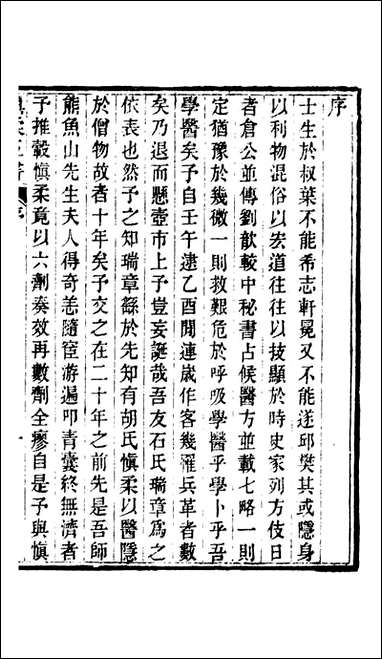 序
士生於叔葉不能希志軒冕又不能遂邱樊其或隱身
以利物混俗以宏道往往以技顯於時史家列方伎日
者倉公並傳劉歆較中秘書占候醫方並載七略一則
定猶豫於幾微一則救艱危於呼吸學醫乎學卜乎吾
學醫矣予自壬午逮乙酉閒連歲作客幾罹兵革者數
矣乃退而懸壺市上予豈妄誕哉吾友石氏瑞章爲之
依表也然予之知瑞章繇於先知有胡氏愼柔以醫隱
於僧物故者十年矣予交之在二十年之前先是吾師
熊魚山先生夫人得奇恙隨宦游遍叩青囊終無濟者
予推轂愼柔竟以六劑奏效再數劑全瘳自是予與愼
五書 序